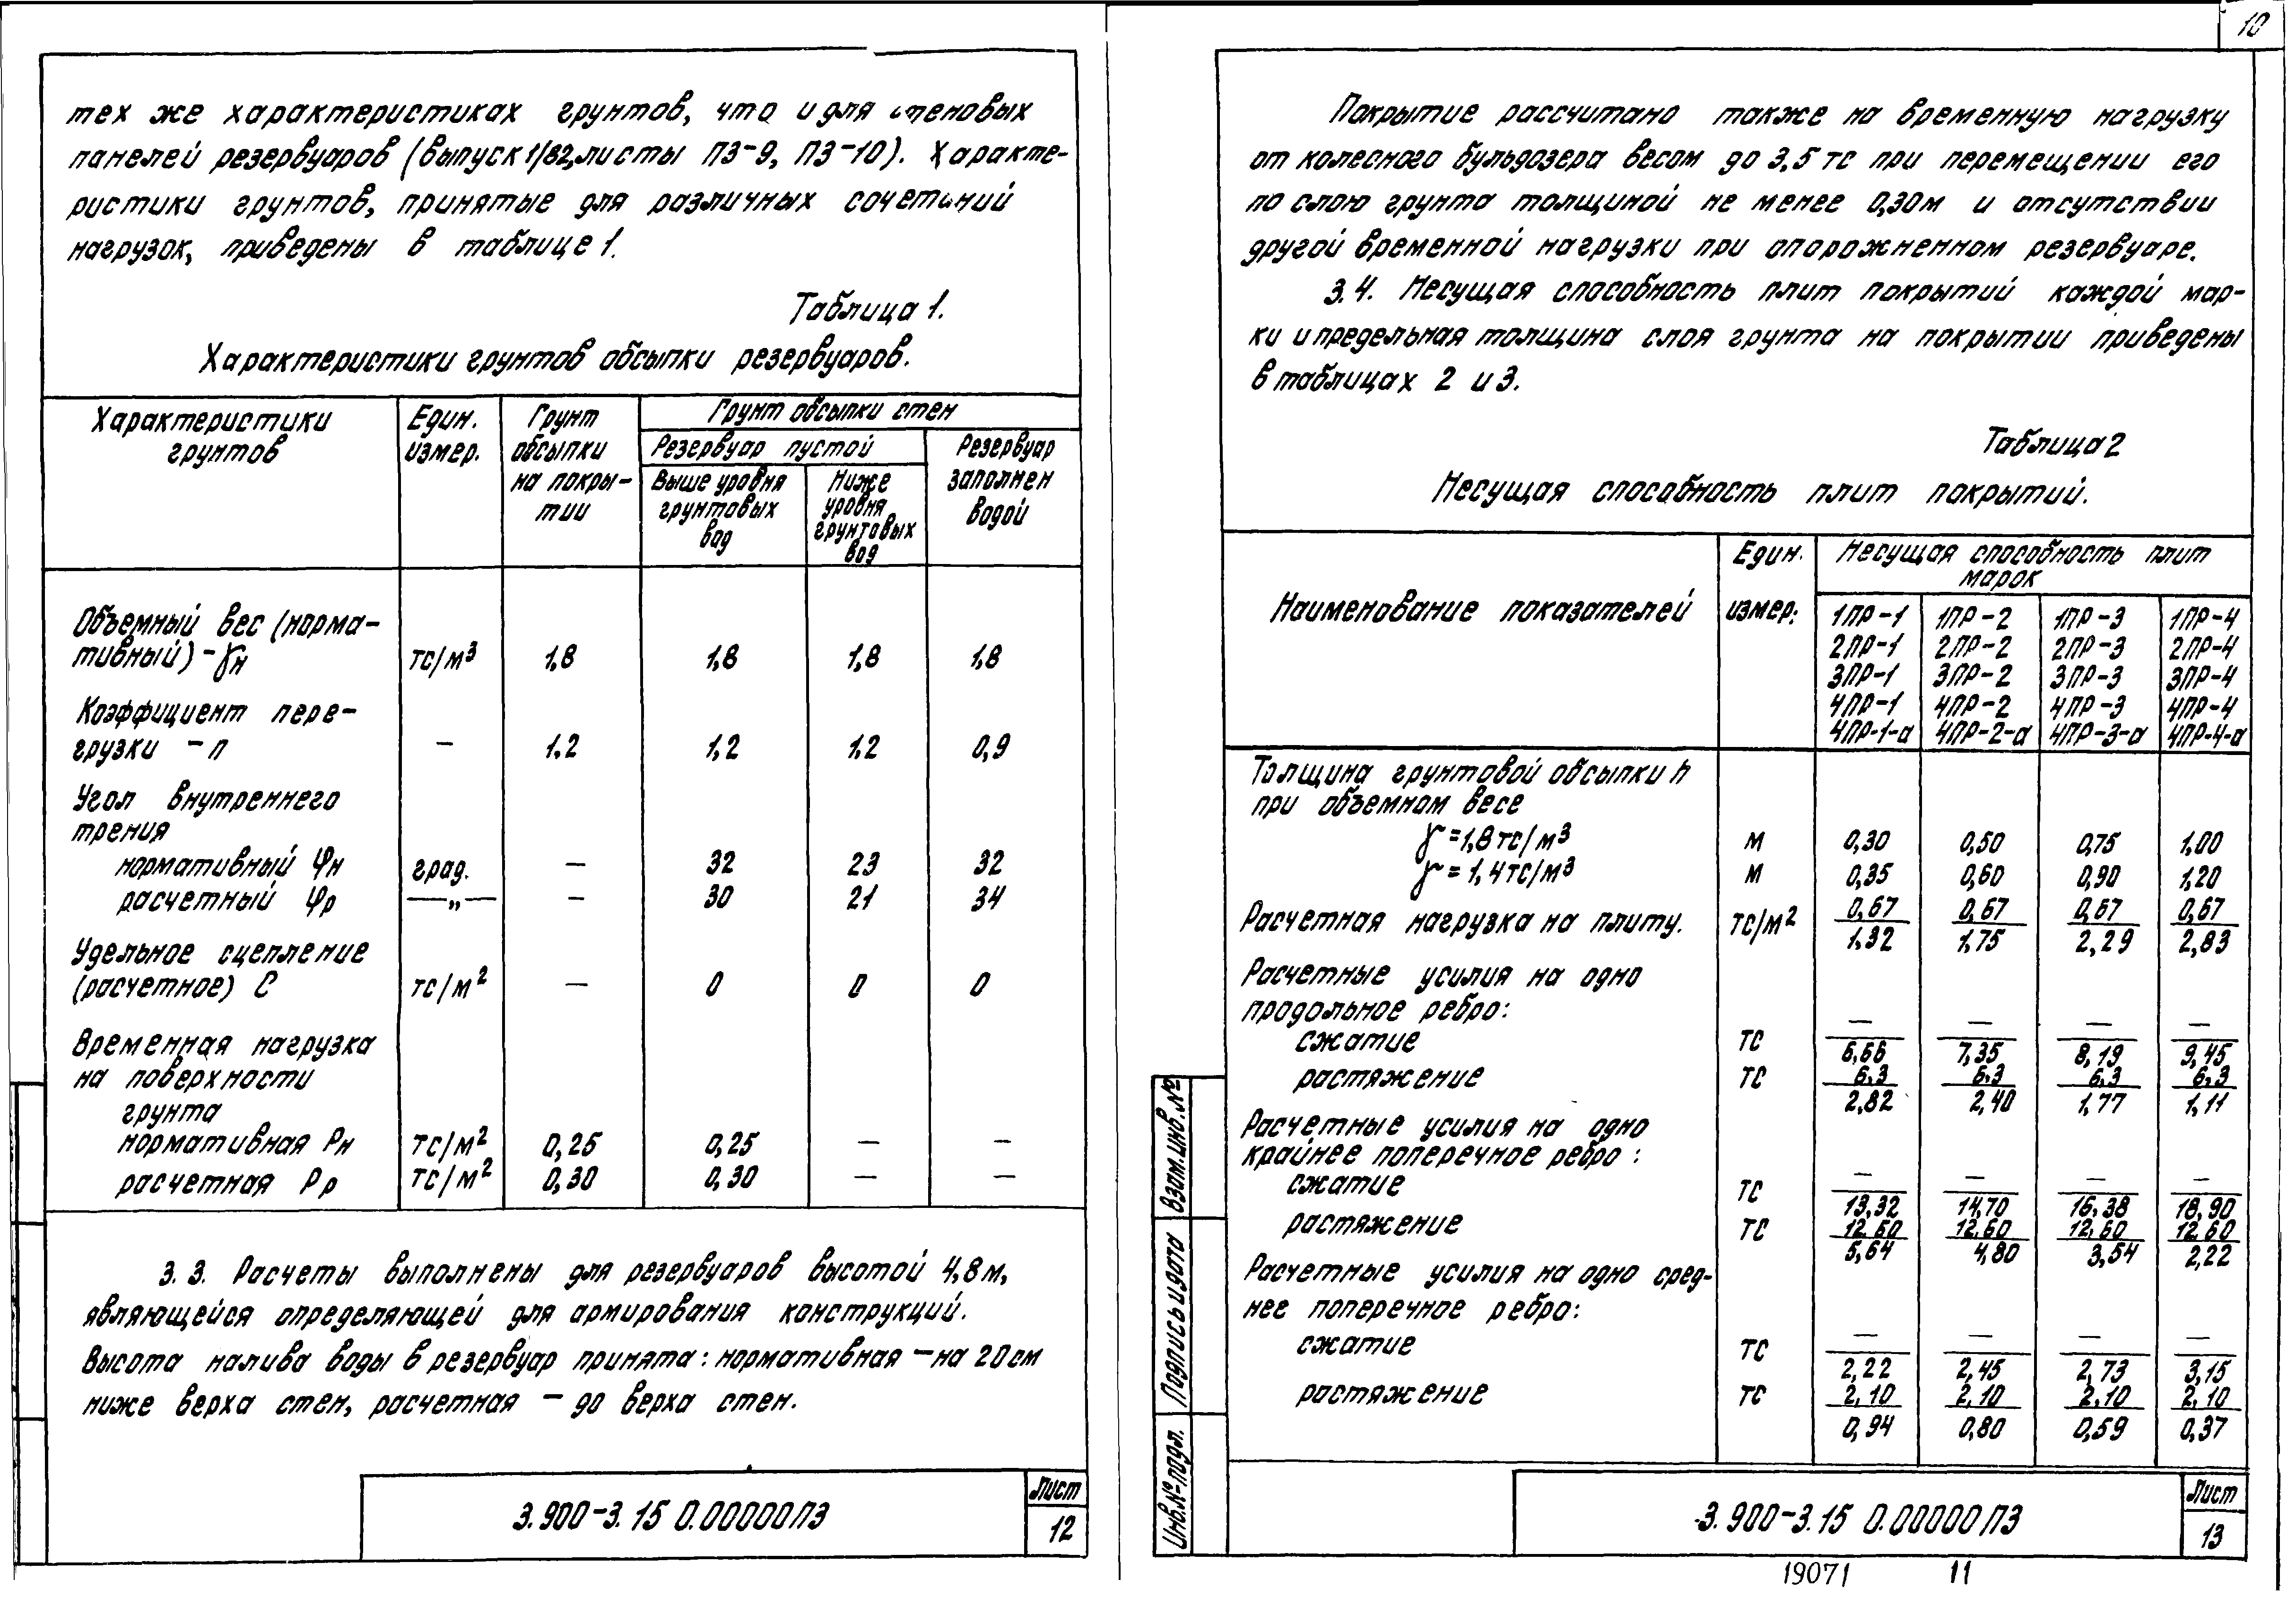 10
тех же характеристиках грунтов, что и для стеновых
панелей резервуаров (выпуск 1/82, листы ПЗ-9, ПЗ-10). Характе-
ристики грунтов, принятые для различных сочетаний
нагрузок, приведены в таблице 1.
Таблица 1.
Характеристики грунтов обсыпки резервуаров.
Характеристики грунтов | Един. измер. | Грунт обсыпки на покры-тии | Грунт обсыпки стен
Резервуар пустой | Резервуар заполнен водой
Выше уровня грунтовых вод | Ниже уровня грунтовых вод
Объемный вес (норма-
тивный) - γн тс/м³ 1,8 1,8 1,8 1,8
Коэффициент пере-
грузки - п — 1.2 1,2 1,2 0,9
Угол внутреннего
трения
нормативный φн град. — 32 23 32
расчетный φр —„— — 30 21 34
Удельное сцепление
(расчетное) С тс/м² — 0 0 0
Временная нагрузка
на поверхности
грунта
нормативная Рн тс/м² 0,25 0,25 — —
расчетная Рр тс/м² 0,30 0,30 — —
3.3. Расчеты выполнены для резервуаров высотой 4,8 м,
являющейся определяющей для армирования конструкций.
Высота налива воды в резервуар принята: нормативная — на 20 см
ниже верха стен, расчетная — до верха стен.
3.900-3.15 0.00000ПЗ
Лист
12
Покрытие рассчитано также на временную нагрузку
от колесного бульдозера весом до 3,5 тс при перемещении его
по слою грунта толщиной не менее 0,30 м и отсутствии
другой временной нагрузки при опорожненном резервуаре.
3.4. Несущая способность плит покрытий каждой мар-
ки и предельная толщина слоя грунта на покрытии приведены
в таблицах 2 и 3.
Таблица 2
Несущая способность плит покрытий.
Наименование показателей | Един. измер. | Несущая способность плит марок
1ПР-1 1ПР-2 1ПР-3 1ПР-4
2ПР-1 2ПР-2 2ПР-3 2ПР-4
3ПР-1 3ПР-2 3ПР-3 3ПР-4
4ПР-1 4ПР-2 4ПР-3 4ПР-4
4ПР-1-а 4ПР-2-а 4ПР-3-а 4ПР-4-а
Толщина грунтовой обсыпки h
при объемном весе
γ=1,8 тс/м³ м 0,30 0,50 0,75 1,00
γ=1,4 тс/м³ м 0,35 0,60 0,90 1,20
Расчетная нагрузка на плиту. тс/м² 0,67 0,67 0,67 0,67
1,32 1,75 2,29 2,83
Расчетные усилия на одно
продольное ребро:
— — — —
сжатие тс 6,66 7,35 8,19 9,45
растяжение тс 6,3 6,3 6,3 6,3
2,82 2,40 1,77 1,11
Расчетные усилия на одно
крайнее поперечное ребро:
— — — —
сжатие тс 13,32 14,70 16,38 18,90
растяжение тс 12,60 12,60 12,60 12,60
5,64 4,80 3,54 2,22
Расчетные усилия на одно сред-
нее поперечное ребро:
— — — —
сжатие тс 2,22 2,45 2,73 3,15
растяжение тс 2,10 2,10 2,10 2,10
0,94 0,80 0,59 0,37
Взам.инв.№
Подпись и дата
Инв.№ подл.
3.900-3.15 0.00000ПЗ
Лист
13
19071 11